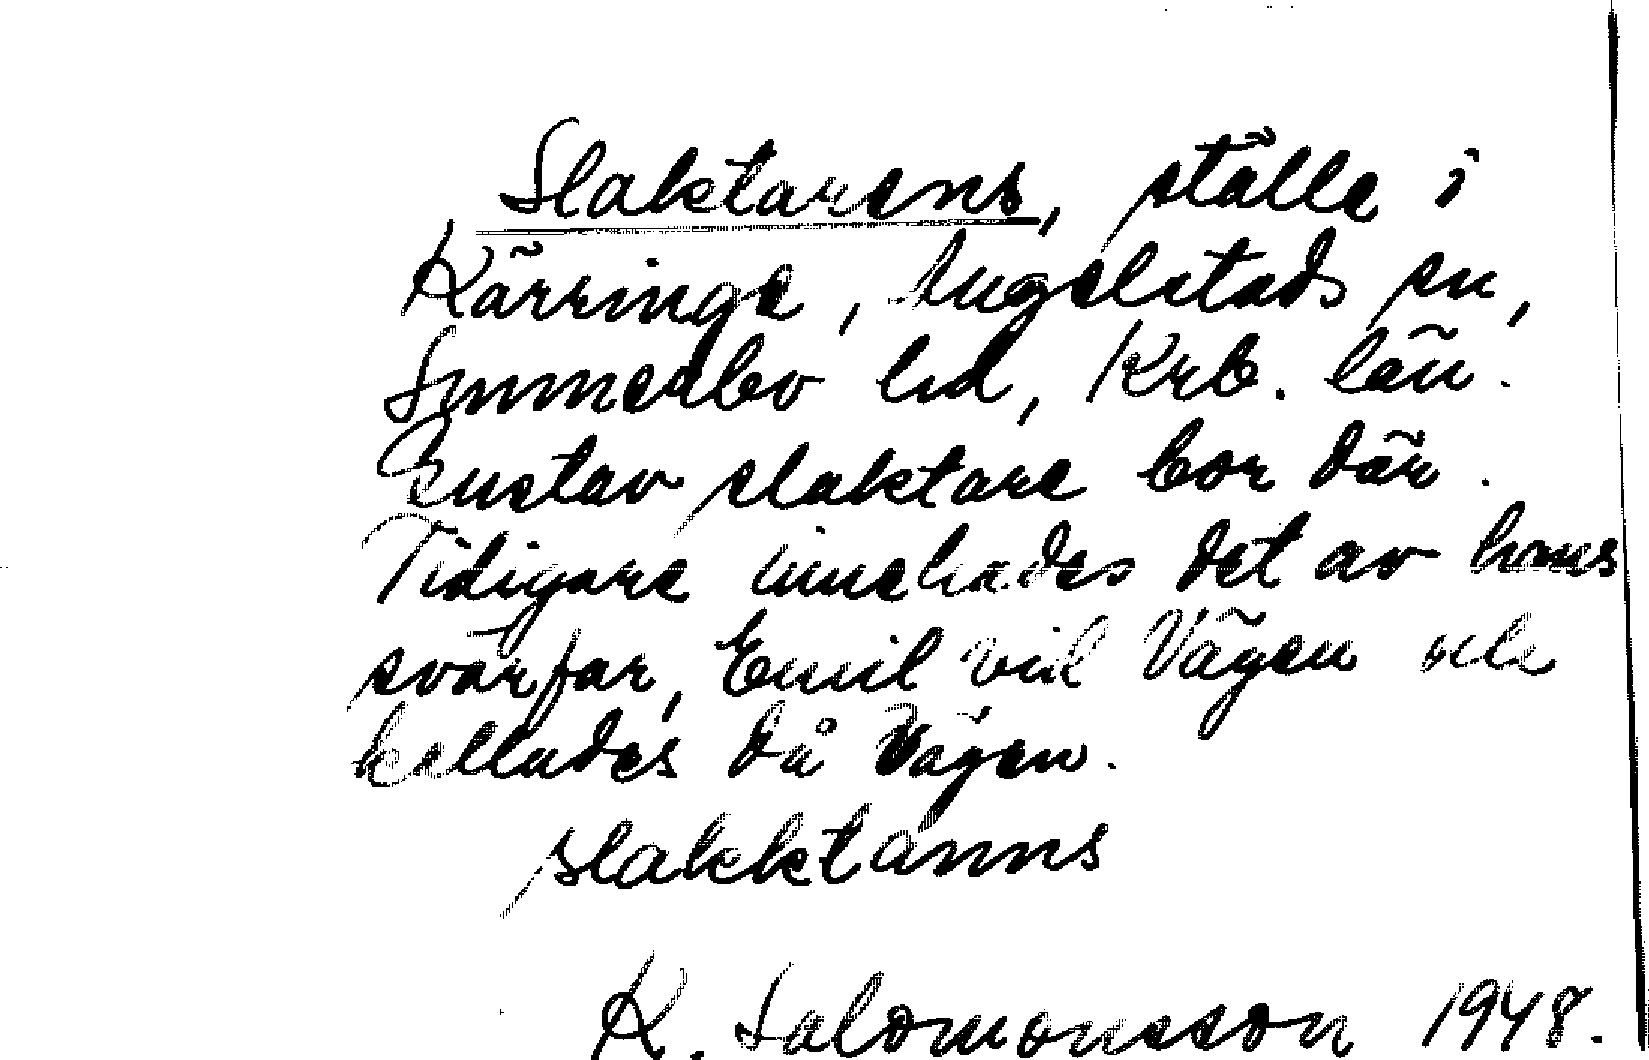 Slaktarens, ställe i
Kärringe, Ängelstads sn,
Sunnerbo hd, Krb. län.
Gustav slaktare bor där.
Tidigare innehades det av hans
svärfar, Emil vid Vägen och
kallades då Vägen.
slakktanns
K. Salomonsson 1948.